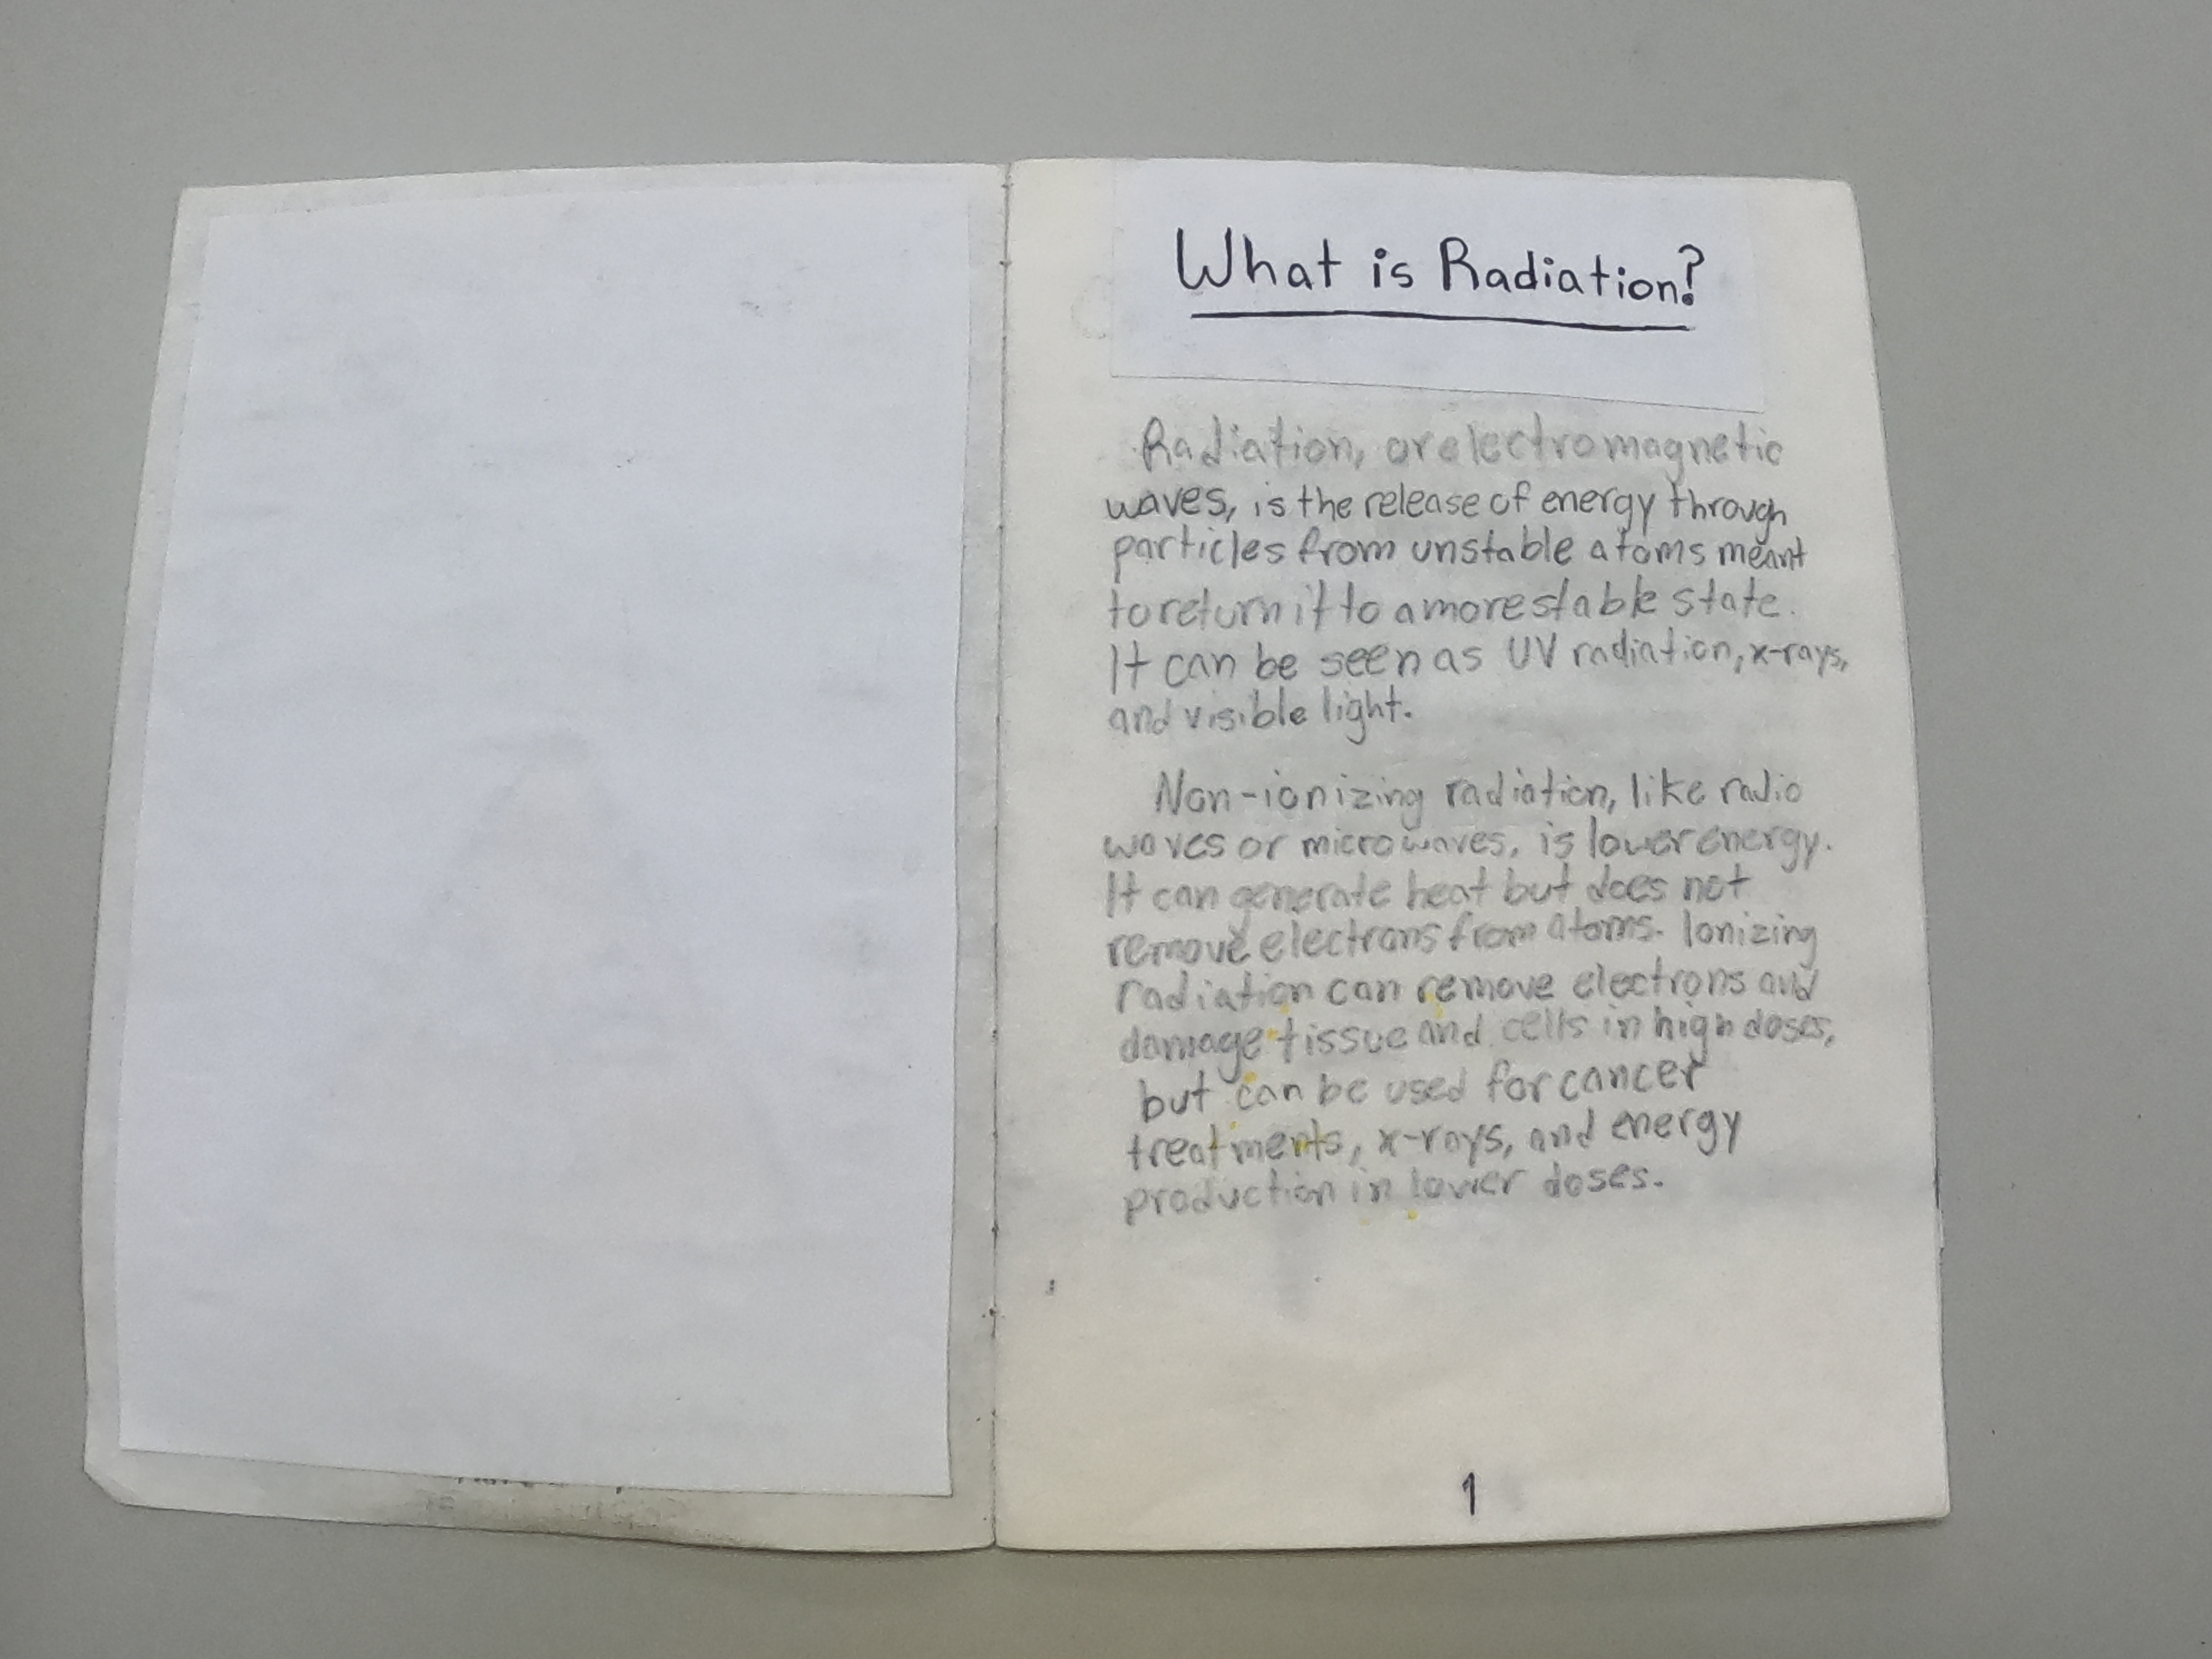 What is Radiation?
Radiation, or electromagnetic
waves, is the release of energy through
particles from unstable atoms meant
to return it to a more stable state.
It can be seen as UV radiation, x-rays,
and visible light.
Non-ionizing radiation, like radio
waves or microwaves, is lower energy.
It can generate heat but does not
remove electrons from atoms. Ionizing
radiation can remove electrons and
damage tissue and cells in high doses,
but can be used for cancer
treatments, x-rays, and energy
production in lower doses.
1